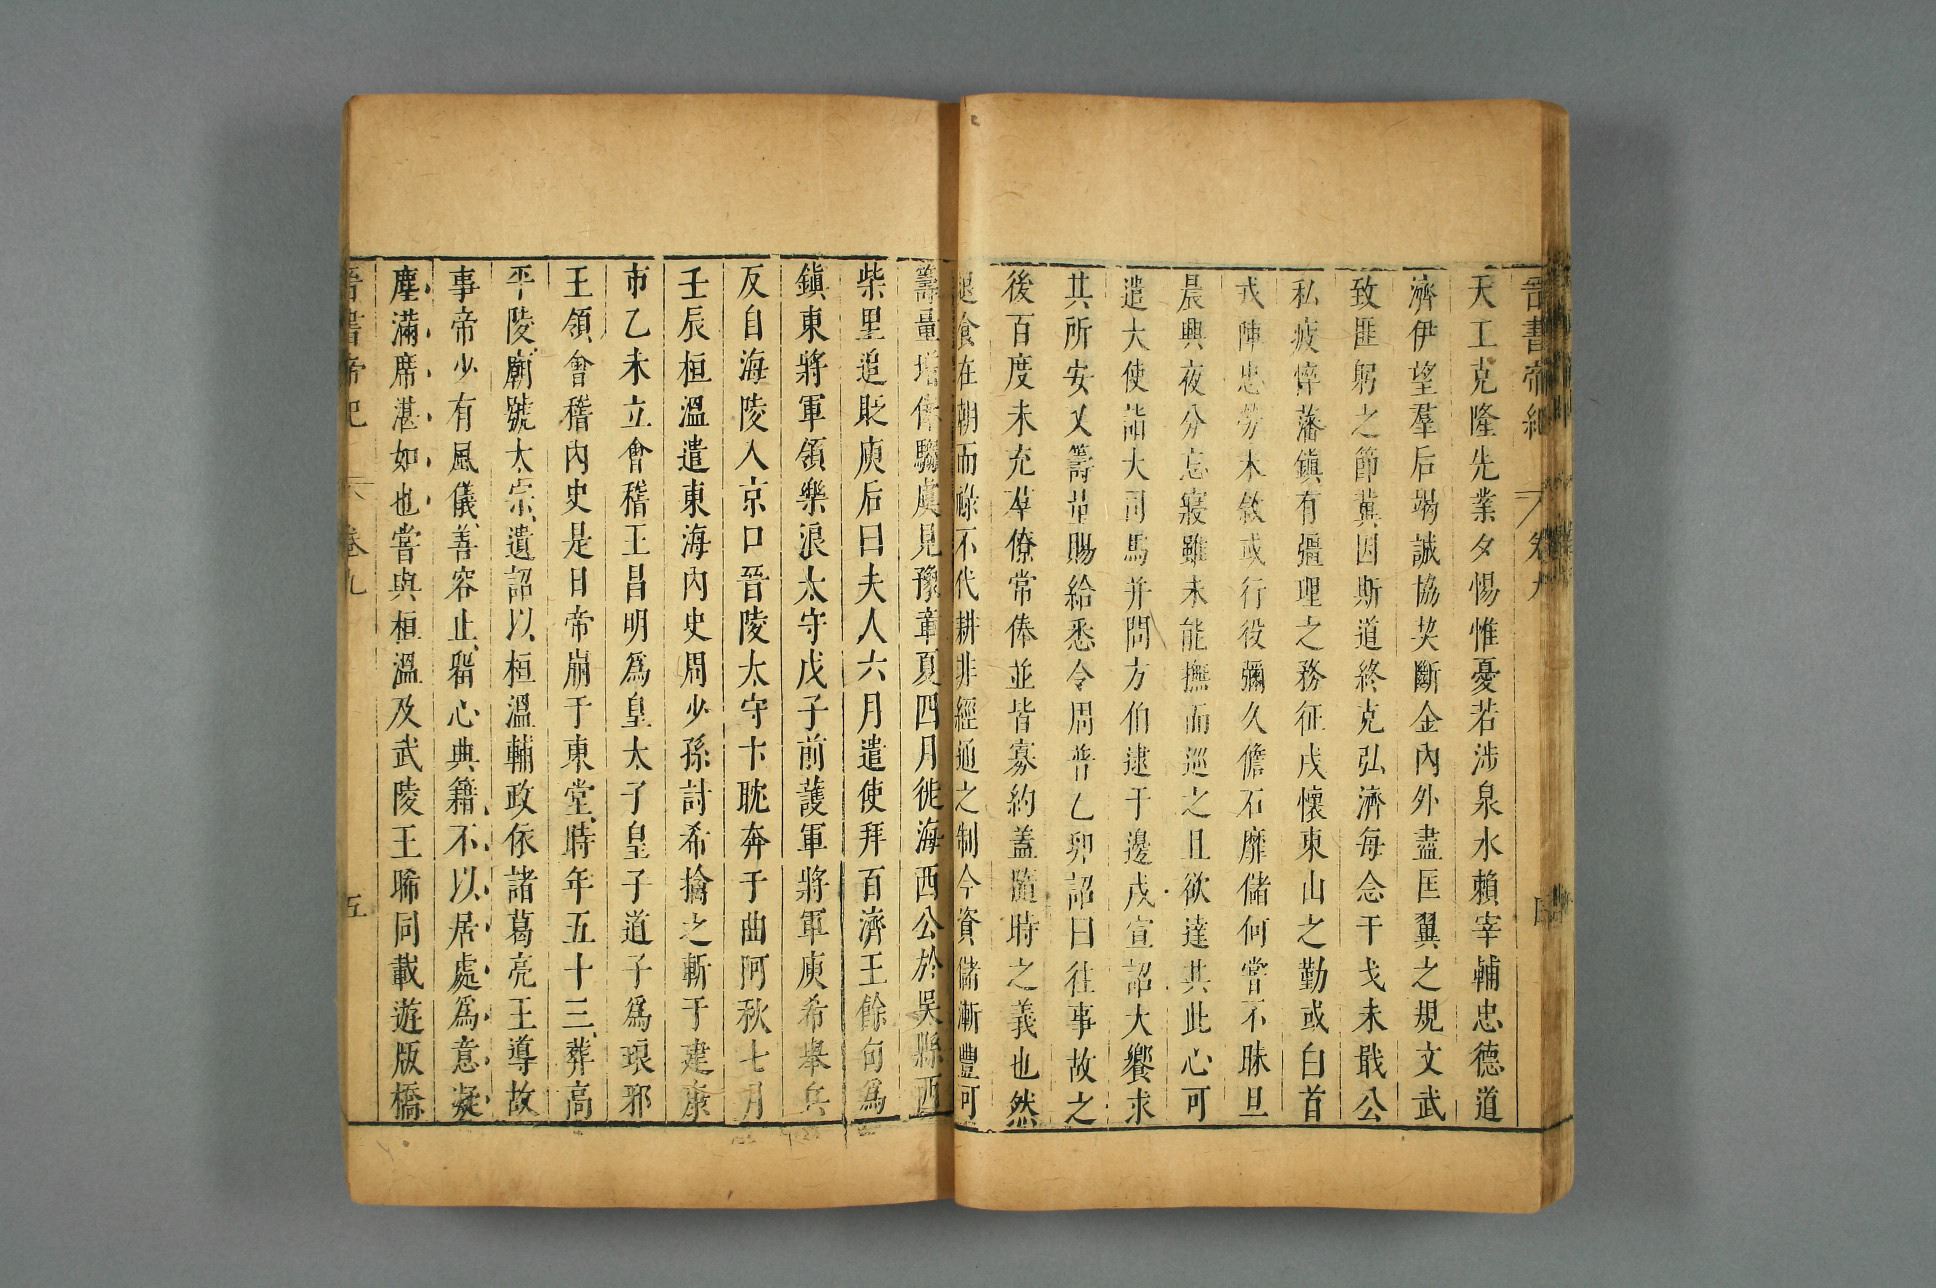 晉書帝紀 卷九
天工克隆先業夕惕惟憂若涉泉水賴宰輔忠德道
濟伊望羣后竭誠協契斷金內外盡匡翼之規文武
致匪躬之節冀因斯道終克弘濟每念干戈未戢公
私疲悴藩鎮有疆理之務征戍懷東山之勤或白首
戎陣忠勞未敘或行役彌久儋石靡儲何嘗不昧旦
晨興夜分忘寢雖未能撫而巡之且欲達其此心可
遣大使詣大司馬并問方伯逮于邊戍宣詔大饗求
其所安又籌量賜給悉令周普乙卯詔曰往事故之
後百度未充羣僚常俸並皆寡約蓋隨時之義也然
退食在朝而祿不代耕非經通之制今資儲漸豐可
籌量增俸騶虞見豫章夏四月徙海西公於吳縣西
柴里追貶庾后曰夫人六月遣使拜百濟王餘句爲
鎮東將軍領樂浪太守戊子前護軍將軍庾希舉兵
反自海陵入京口晉陵太守卞耽奔于曲阿秋七月
壬辰桓溫遣東海內史周少孫討希擒之斬于建康
市乙未立會稽王昌明爲皇太子皇子道子爲琅邪
王領會稽內史是日帝崩于東堂時年五十三葬高
平陵廟號太宗遺詔以桓溫輔政依諸葛亮王導故
事帝少有風儀善容止留心典籍不以居處爲意凝
塵滿席湛如也嘗與桓溫及武陵王晞同載遊版橋
晉書帝紀 卷九 五